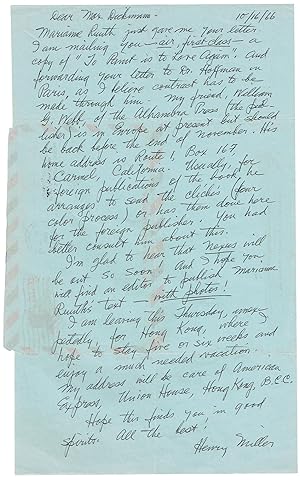 Dear Mr. Dickinson — 10/16/66
Marianne Ruuth just gave me your letter.
I am mailing you — air, first class — a
copy of "To Paint is to Love Again. And
forwarding your letter to Dr. Hoffman in
Paris, as I believe contract has to be
made through him. My friend, William
G. Webb, of the Alhambra Press (the pub-
lisher) is in Europe at present but should
be back before the end of November. His
home address is Route 1, Box 167,
Carmel, California. Usually, for
foreign publications of the book he
arranges to send the clichés (four
color process) or has them done here
for the foreign publisher. You had
better consult him about this.
I'm glad to hear that Nexus will
be out so soon. And I hope you
will find an editor to publish Marianne
Ruuth's text — with photos!
I am leaving this Thursday, unex-
pectedly, for Hong Kong, where I
hope to stay five or six weeks and
enjoy a much needed vacation.
My address will be care of American
Express, Union House, Hong Kong, B.C.C.
Hope this finds you in good
spirits. All the best!
Henry Miller